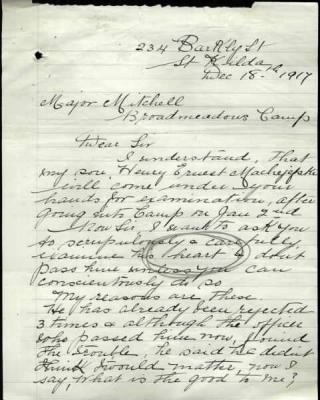 234 Barkly St
St Kilda
Dec 18th 1917
Major Mitchell
Broadmeadows Camp
Dear Sir
I understand, that
my son, Henry Ernest
will come under your
hands for examination, after
going into Camp on Jan 2nd
Now Sir, I want to ask you
to scrupulously & carefully
examine his heart & dont
pass him unless you can
conscientiously do so
My reasons are these.
He has already been rejected
3 times & although the officer
who passed him now, found
the trouble, he said he didnt
think it would matter, now I
say, what is the good to me?